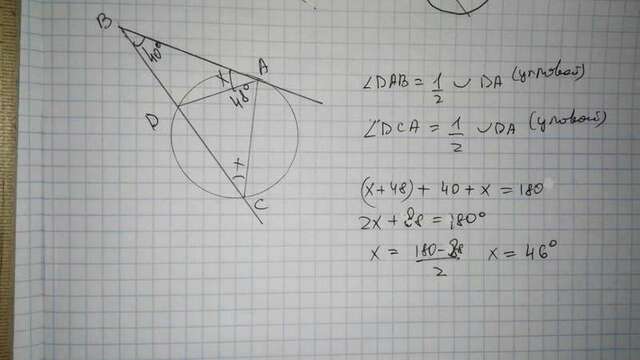 B
40°
x
A
48°
D
x
C
∠DAB = 1/2 ∪ DA (угловой)
∠DCA = 1/2 ∪DA (угловой)
(x+48) + 40 + x = 180
2x + 88 = 180°
x = (180-88)/2 x = 46°